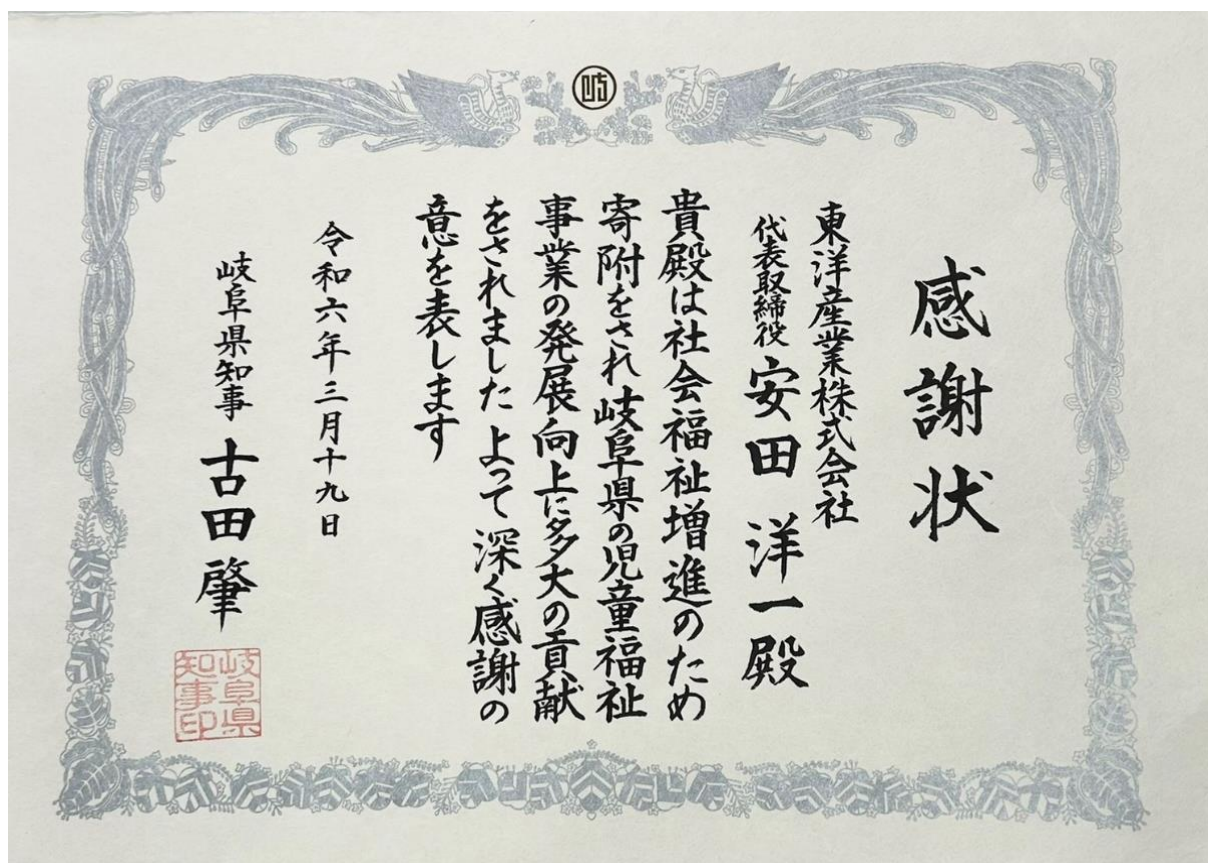 感謝状
東洋産業株式会社
代表取締役 安田 洋一 殿
貴殿は社会福祉増進のため
寄附をされ岐阜県の児童福祉
事業の発展向上に多大の貢献
をされました よって深く感謝の
意を表します
令和六年三月十九日
岐阜県知事 古田 肇
岐阜県
知事印
岐